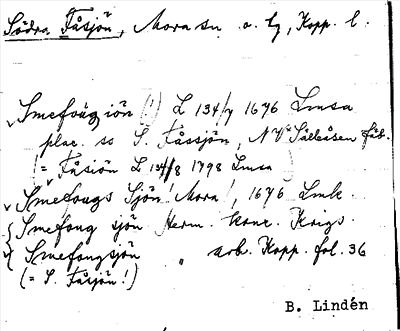 Södra Fåsjön, Mora sn o. hg, Kopp. l.
Smefougsiön (!) L 134/7 1676 Lmsa
plac. ss S. Fåssjön, NV Sälåsen fäb.
(= Fåsiön L 134/8 1798 Lmsa)
Smefougs Sjön! Mora!, 1676 Lmk.
Smefong sjön Herm. konc. Krigs.
Smefongsjön " ark. Kopp. fol. 36
(= S. Fåsjön!)
B. Lindén